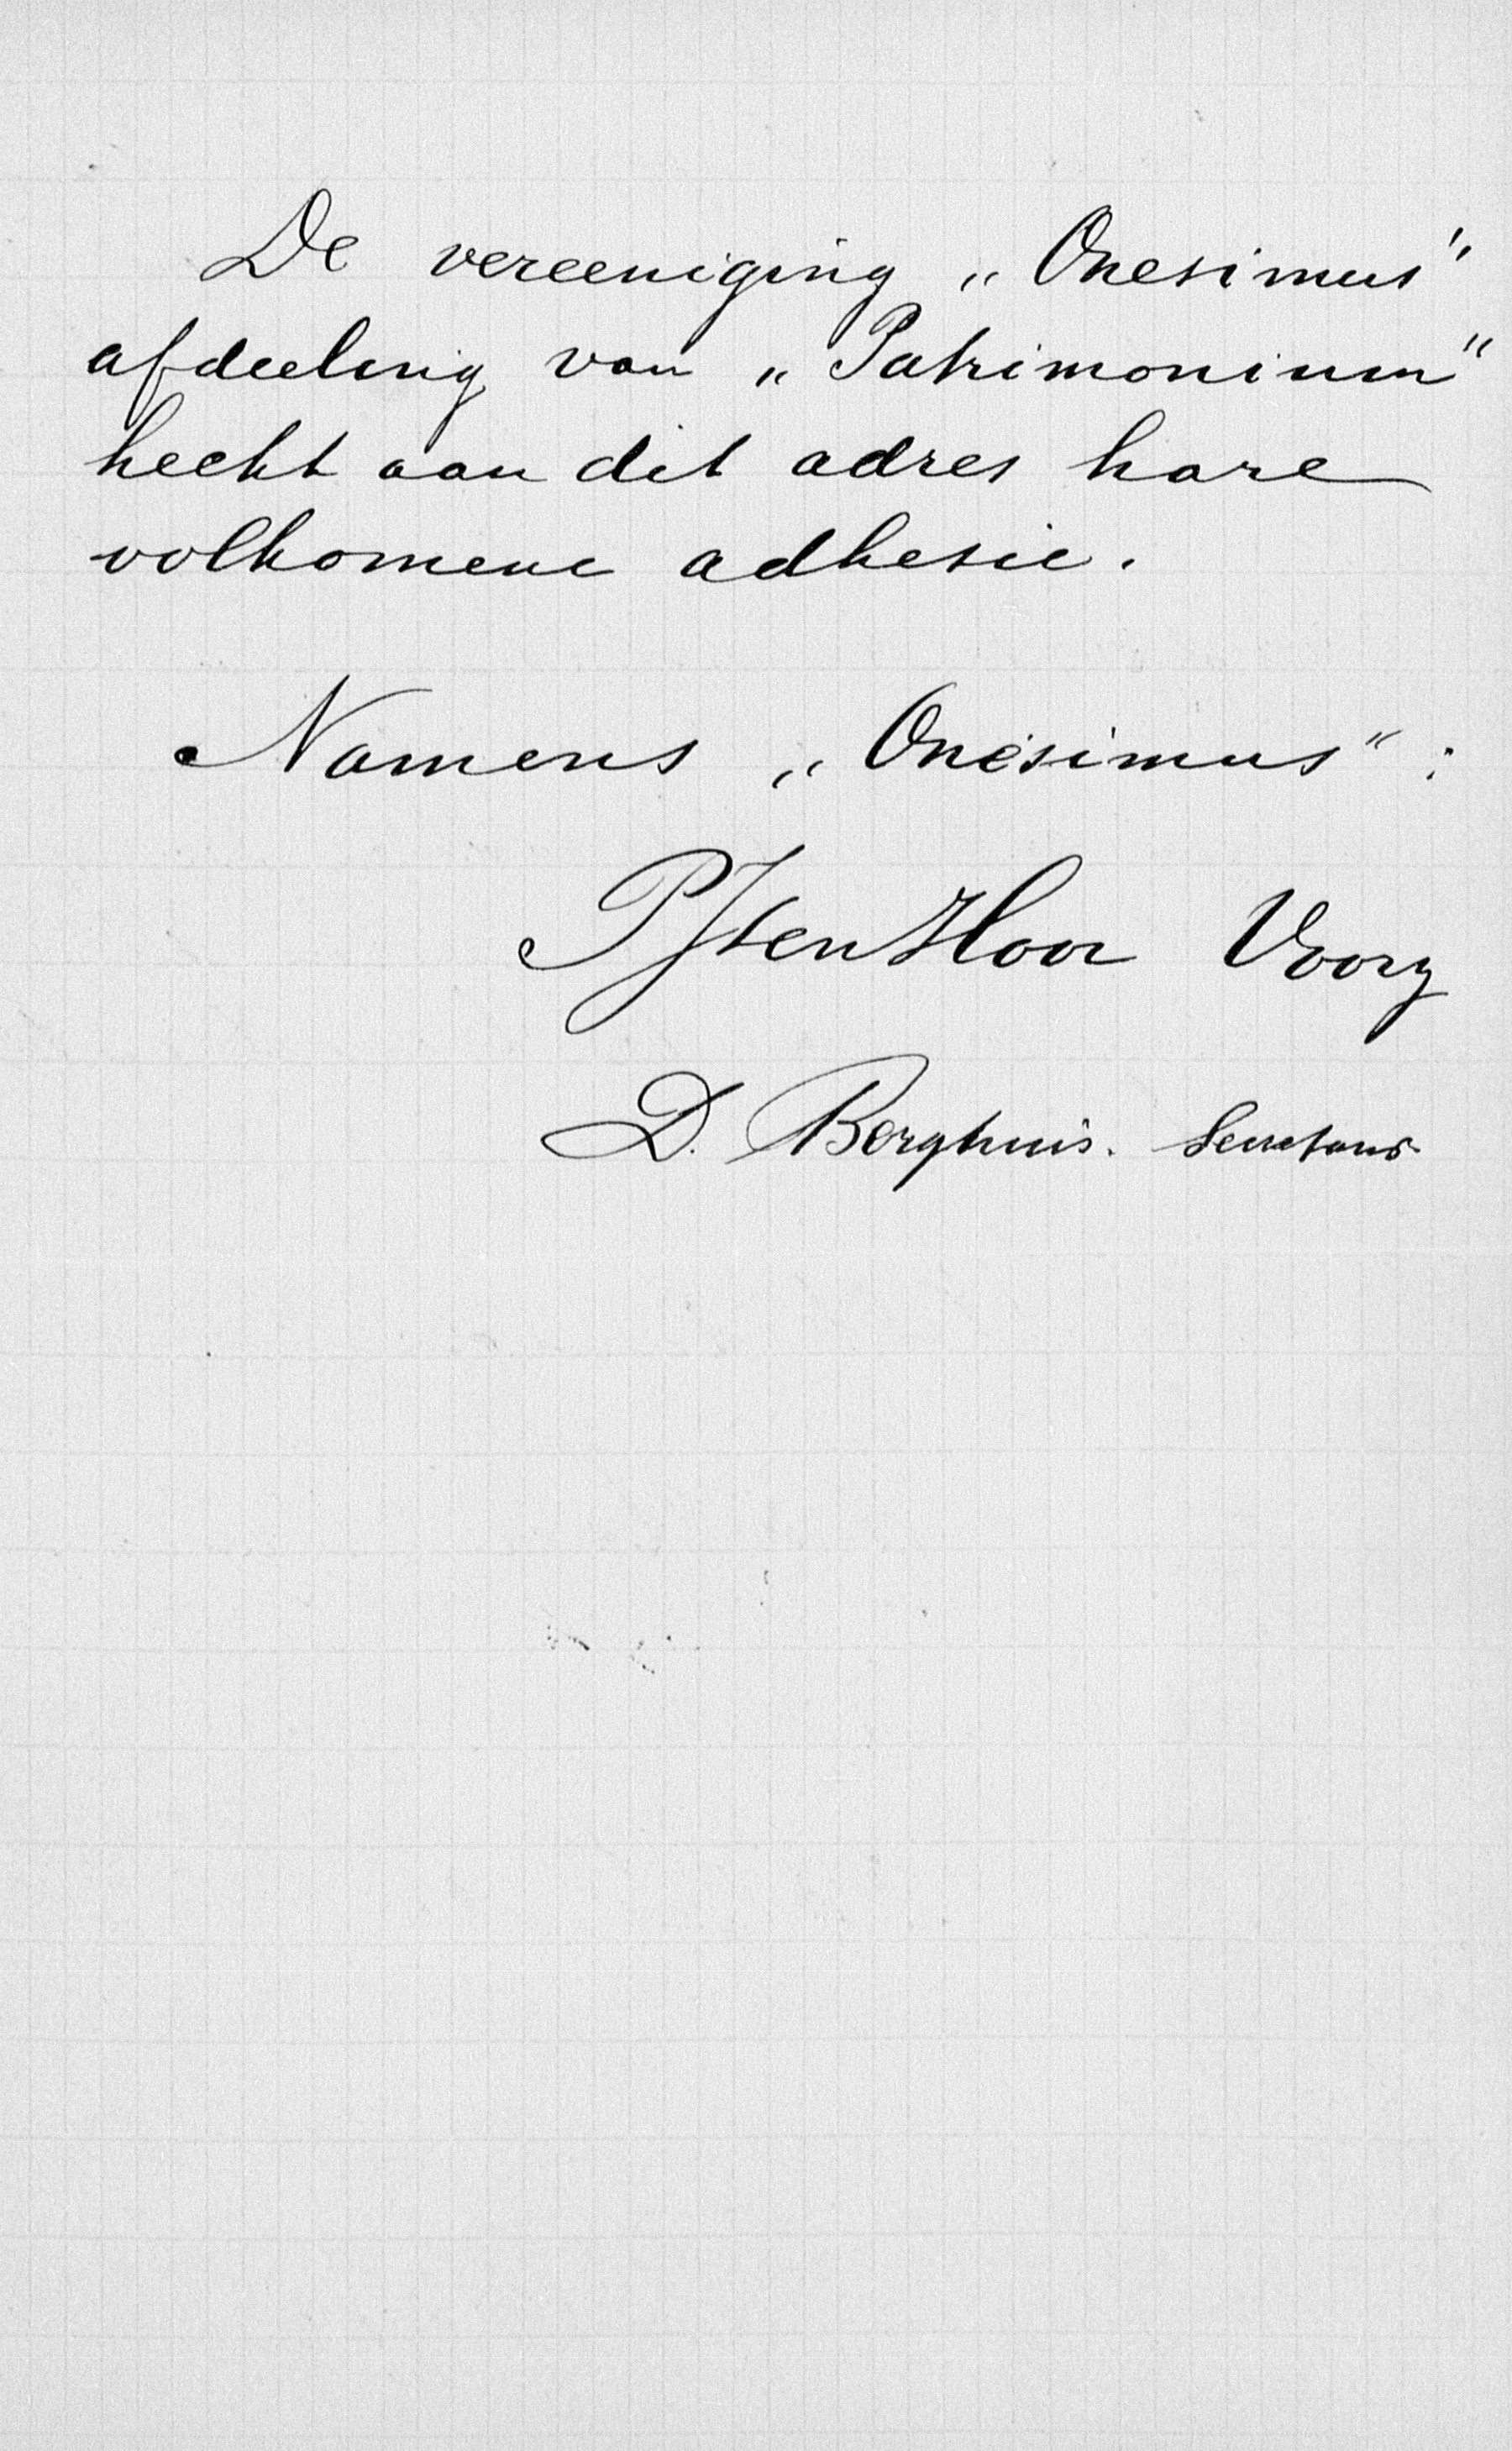 De vereeniging „Onesimus"
afdeeling van „Patrimonium"
hecht aan dit adres hare
volkomene adhesie.
Namens „Onesimus":
Voorz
D. Berghuis. Secretaris